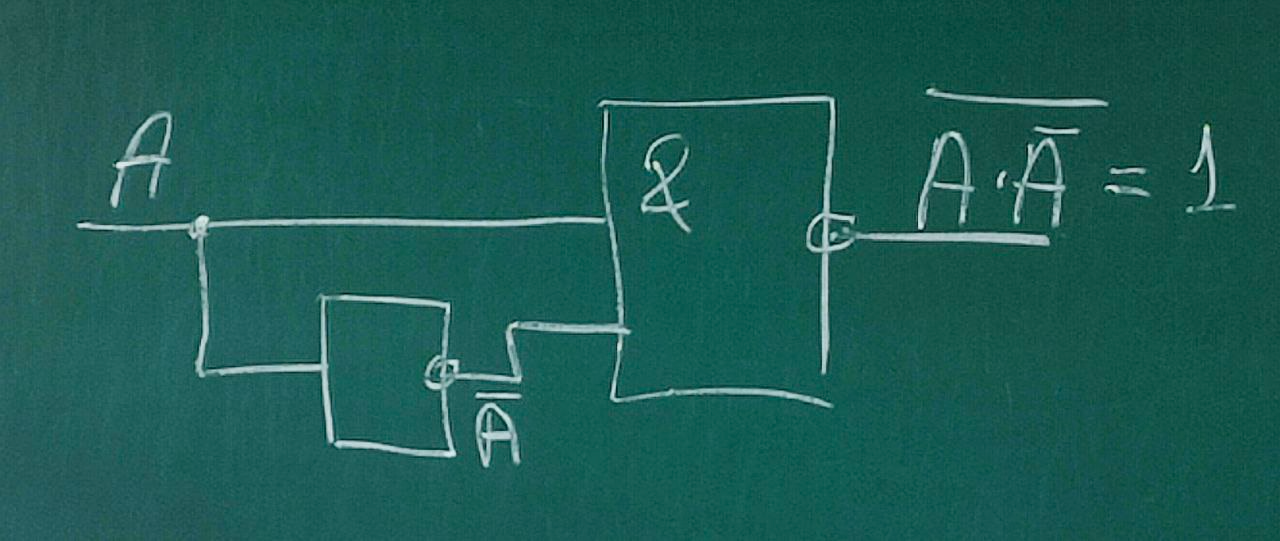 A
&
A̅·A̅̅ = 1
A̅